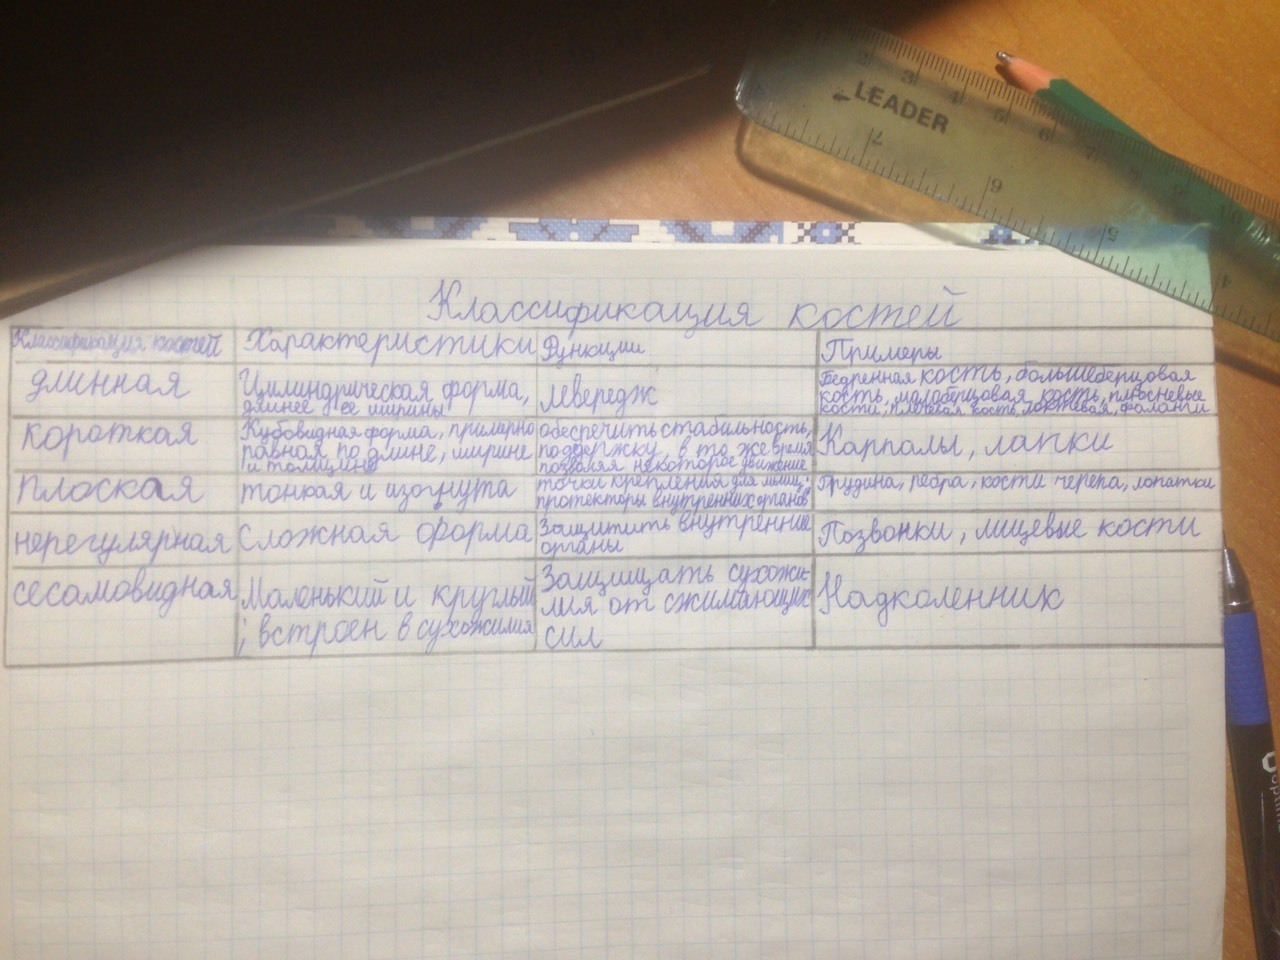 LEADER
Классификация костей
Классификация костей
Характеристики
Функции
Примеры
длинная
Цилиндрическая форма,
длинее её ширины
левередж
Бедренная кость, большеберцовая
кость, малоберцовая кость, плюсневые
кости, плечевая кость, локтевая, фаланги
короткая
Кубовидная форма, примерно
равная по длине, ширине
и толщине
обеспечить стабильность,
поддержку, в то же время
позволяя некоторое движение
Карпалы, лапки
плоская
тонкая и изогнута
точки крепления для мышц;
протекторы внутренних органов
Грудина, ребра, кости черепа, лопатки
нерегулярная
Сложная форма
Защитить внутренние
органы
Позвонки, лицевые кости
сесамовидная
Маленький и круглый
; встроен в сухожилия
Защищать сухожи-
лия от сжимающих
сил
Надколенник